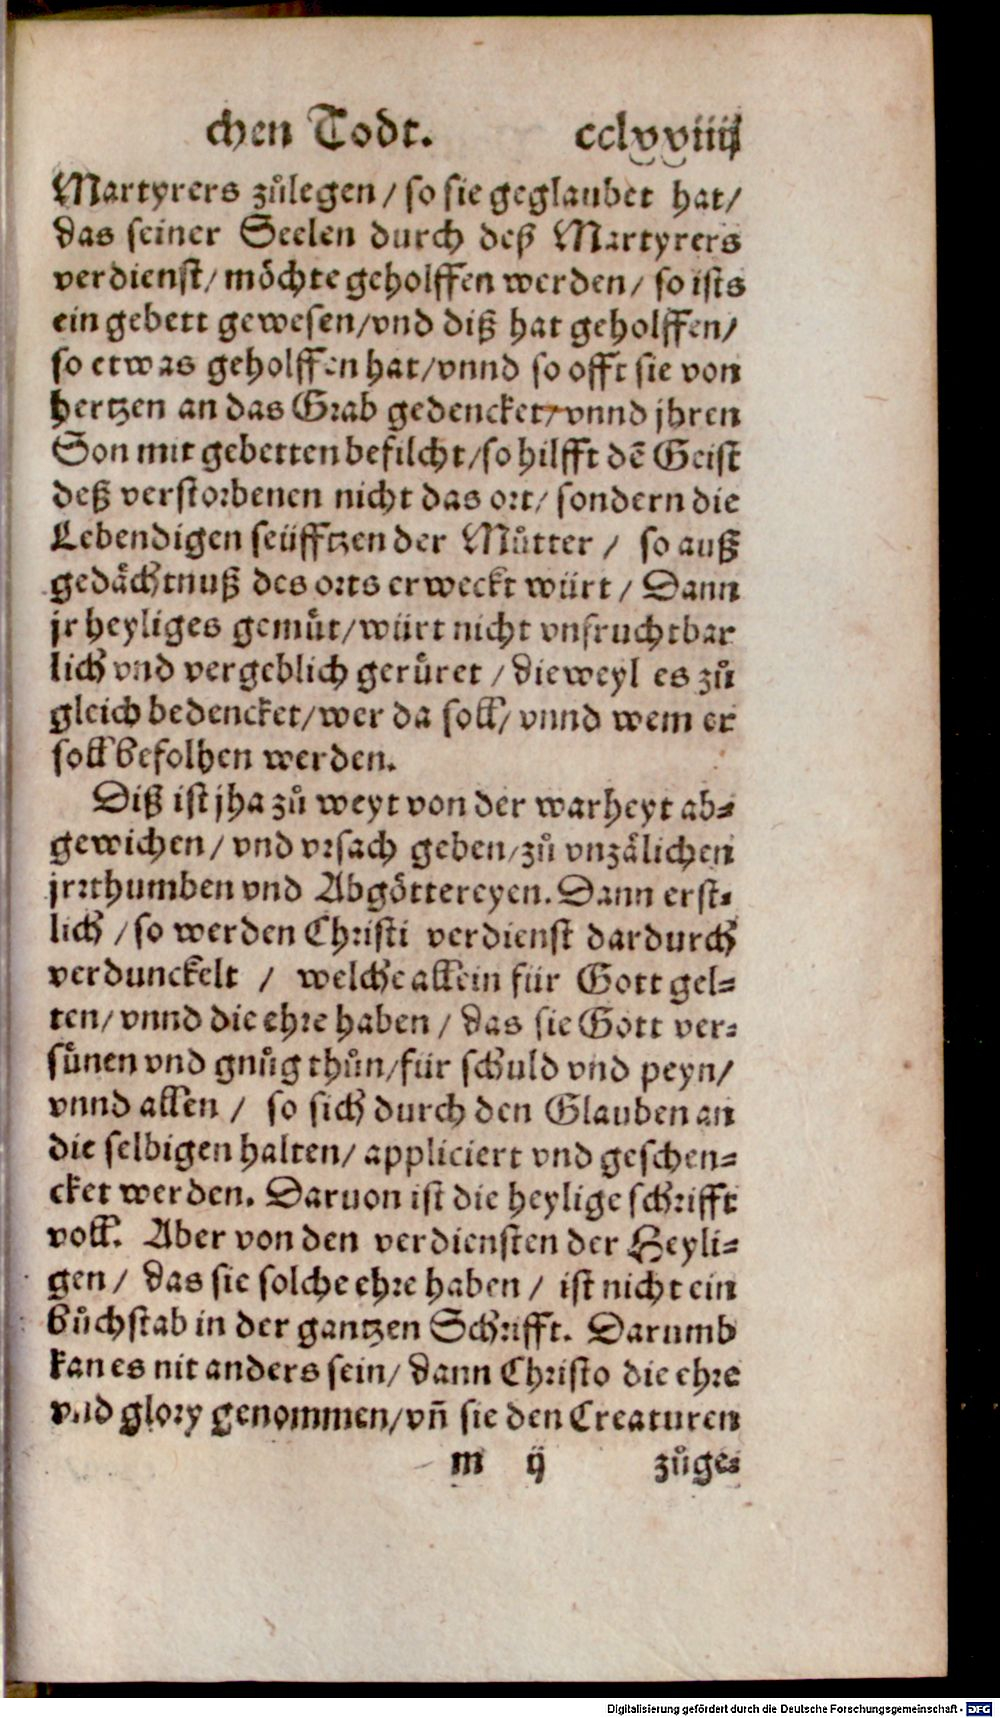 chen Todt. cclxxiiij
Martyrers zůlegen / so sie geglaubet hat /
das seiner Seelen durch deß Martyrers
verdienst / möchte geholffen werden / so ists
ein gebett gewesen / vnd diß hat geholffen /
so etwas geholffen hat / vnnd so offt sie von
hertzen an das Grab gedencket / vnnd jhren
Son mit gebetten befilcht / so hilfft dē Geist
deß verstorbenen nicht das ort / sondern die
Lebendigen seüfftzen der Můtter / so auß
gedächtnuß des orts erweckt würt / Dann
jr heyliges gemüt / würt nicht vnfruchtbar
lich vnd vergeblich gerüret / dieweyl es zů
gleich bedencket / wer da soll / vnnd wem er
soll befolhen werden.
Diß ist jha zů weyt von der warheyt ab-
gewichen / vnd vrsach geben / zů vnzälichen
jrrthumben vnd Abgöttereyen. Dann erst-
lich / so werden Christi verdienst dardurch
verdunckelt / welche allein für Gott gel-
ten / vnnd die ehre haben / das sie Gott ver-
sünen vnd gnůg thůn / für schuld vnd peyn /
vnnd allen / so sich durch den Glauben an
die selbigen halten / appliciert vnd geschen-
cket werden. Daruon ist die heylige schrifft
voll. Aber von den verdiensten der Heyli-
gen / das sie solche ehre haben / ist nicht ein
bůchstab in der gantzen Schrifft. Darumb
kan es nit anders sein / dann Christo die ehre
vnd glory genommen / vñ sie den Creaturen
m ij zůge-
Digitalisierung gefördert durch die Deutsche Forschungsgemeinschaft - DFG